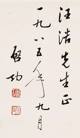 汪浩先生正
一九八五年九月
启功